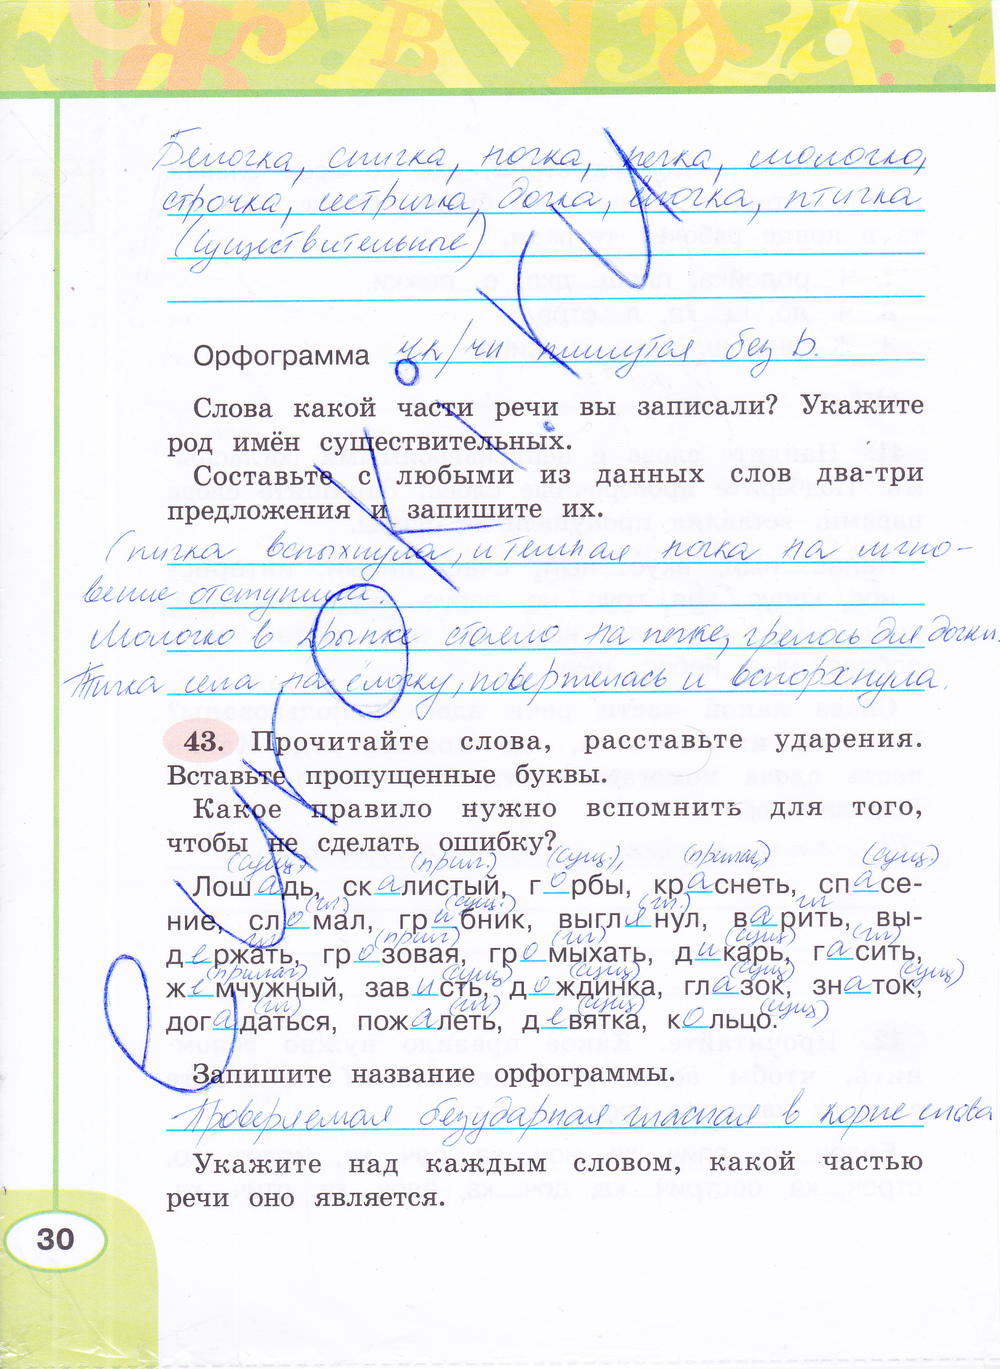 Белочка, спичка, ночка, печка, молочко,
строчка, сестричка, дочка, ёлочка, птичка
(Существительные)
Орфограмма чк/чн пишутся без Ь.
Слова какой части речи вы записали? Укажите
род имён существительных.
Составьте с любыми из данных слов два-три
предложения и запишите их.
Спичка вспыхнула, и темная ночка на мгно-
вение отступила.
Молочко в крынке стояло на печке, грелось для дочки.
Птичка села на ёлочку, повертелась и вспорхнула.
43. Прочитайте слова, расставьте ударения.
Вставьте пропущенные буквы.
Какое правило нужно вспомнить для того,
чтобы не сделать ошибку?
(сущ.) (прил.) (сущ.), (прилаг.) (сущ.)
Лошадь, скалистый, горбы, краснеть, спасе-
(гл.) (сущ.) (гл.) гл
ние, сломал, грибник, выглянул, варить, вы-
гл (прил) (гл) (сущ) (гл)
держать, грозовая, громыхать, дикарь, гасить,
(прилаг) (сущ) (сущ) (сущ) (сущ)
жемчужный, зависть, дождинка, глазок, знаток,
(гл) (гл) (сущ) (сущ)
догадаться, пожалеть, девятка, кольцо.
Запишите название орфограммы.
Проверяемая безударная гласная в корне слова
Укажите над каждым словом, какой частью
речи оно является.
30